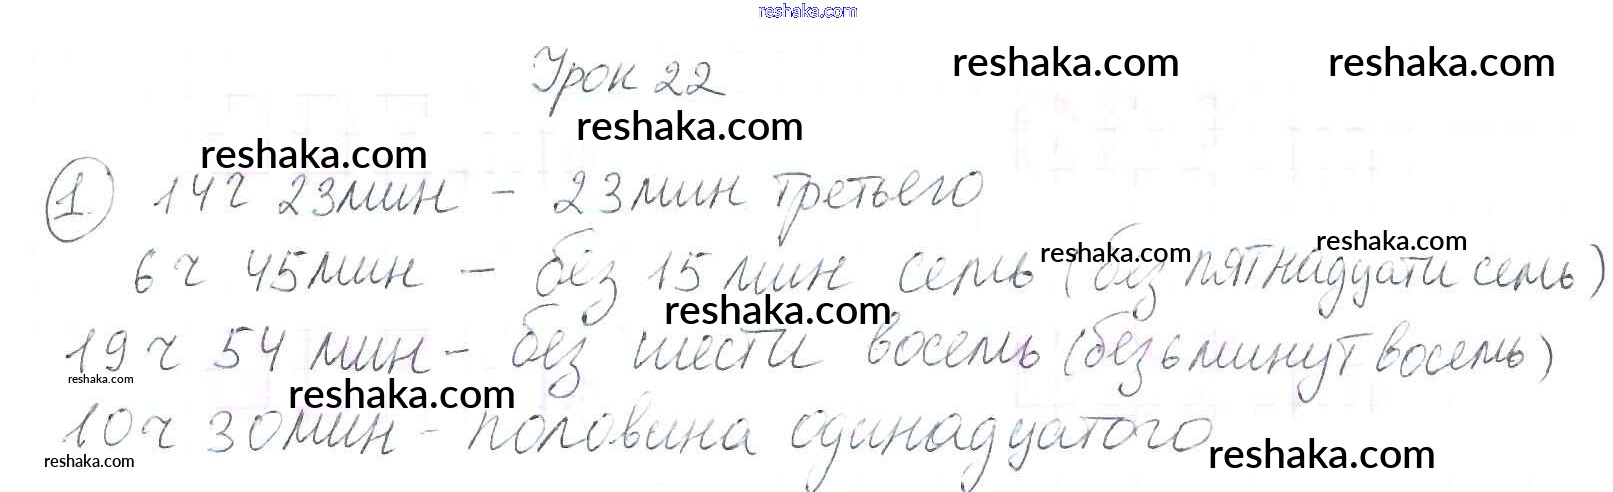 reshaka.com
Урок 22
reshaka.com reshaka.com
reshaka.com
reshaka.com
1 14ч 23мин – 23мин третьего
reshaka.com reshaka.com
6ч 45мин – без 15 мин семь (без пятнадцати семь)
reshaka.com
19ч 54 мин – без шести восемь (без 6 минут восемь)
reshaka.com
reshaka.com
10ч 30мин – половина одинадцатого
reshaka.com
reshaka.com